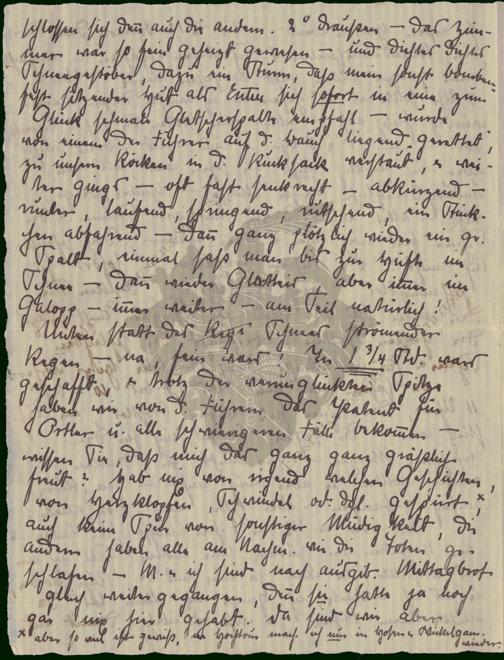 schlossen sich denn auch die andern. 2° draußen – das Zim-
mer war so fein geheizt gewesen – und dichtes dichtes
Schneegestöber, dazu ein Sturm, daß mein sonst bomben-
fest sitzender Hut als Erster sich sofort in eine zum
Glück schmale Gletscherspalte empfahl – wurde
von einem der Führer auf d. Bauch liegend gerettet,
zu unsern Röcken in d. Rucksack verstaut, u. wei-
ter gings – oft fast senkrecht – abkürzend –
runter, laufend, springend, rutschend, ein Stück-
chen abfahrend – dann ganz plötzlich wieder ein gr.
Spalt, einmal saß man bis zur Hüfte im
Schnee – dann wieder Glatteis, aber immer im
Galopp – immer weiter – am Seil natürlich!
Unten statt des Schnees strömender
Regen – na, fein wars! In 1 3/4 Std. wars
geschafft, u. trotz der verunglückten Spitze
haben wir von d. Führern das Patent für
Ortler u. alle schwierigeren Fälle bekommen –
wissen Sie, daß mich das ganz ganz gräßlich
freut? Hab nix von irgend welchen Geschichten,
von Herzklopfen, Schwindel od. dgl. gespürt,ˣ
auch keine Spur von sonstiger Müdigkeit, die
andern haben alle am Nachm. wie die Toten ge-
schlafen – M. u. ich sind nach ausgib. Mittagbrot
gleich weitergegangen, denn sie hatte ja noch
gar nix hier gehabt. Da sind wir aber
ˣ aber so viel ist gewiß, ne Hochtour mach ich nur in
wieder